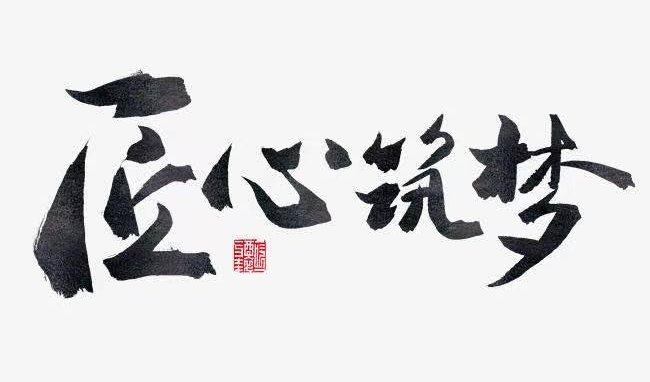 匠心筑梦